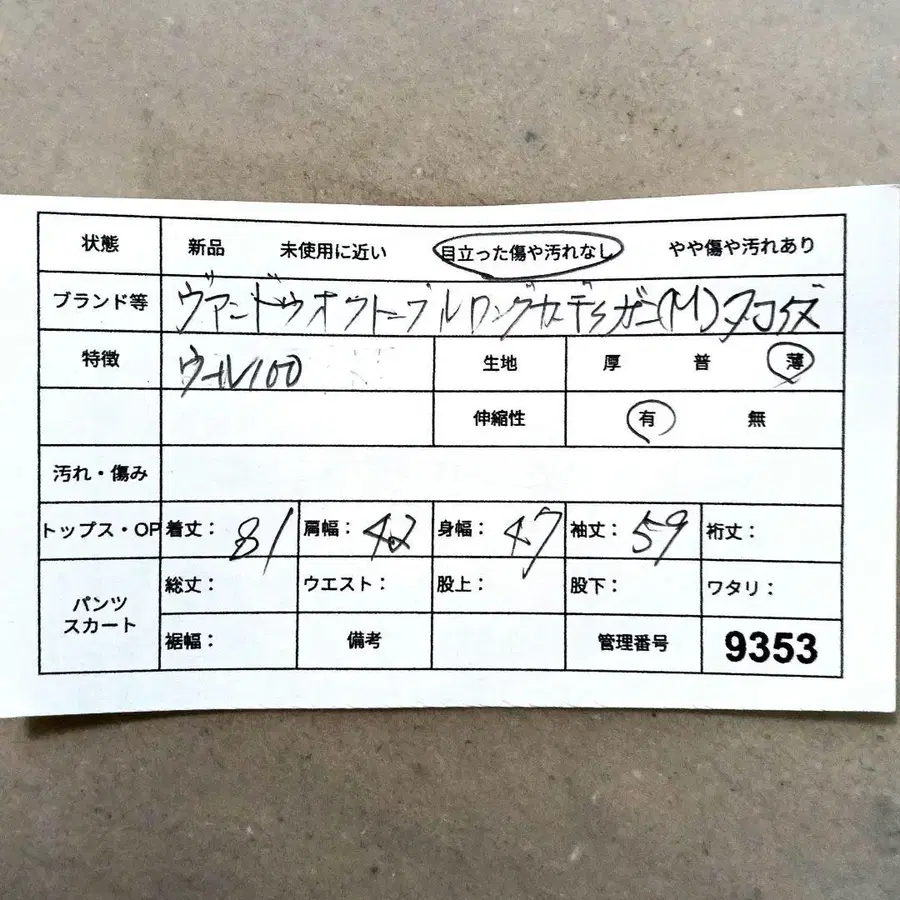 状態 新品 未使用に近い 目立った傷や汚れなし やや傷や汚れあり
ブランド等 ヴァンドゥオクトーブル ロングカーディガン(M)ターコイズ
特徴 ウール100 生地 厚 普 薄
伸縮性 有 無
汚れ・傷み
トップス・OP 着丈: 81 肩幅: 42 身幅: 47 袖丈: 59 裄丈:
パンツ スカート 総丈: ウエスト: 股上: 股下: ワタリ:
裾幅: 備考 管理番号 9353